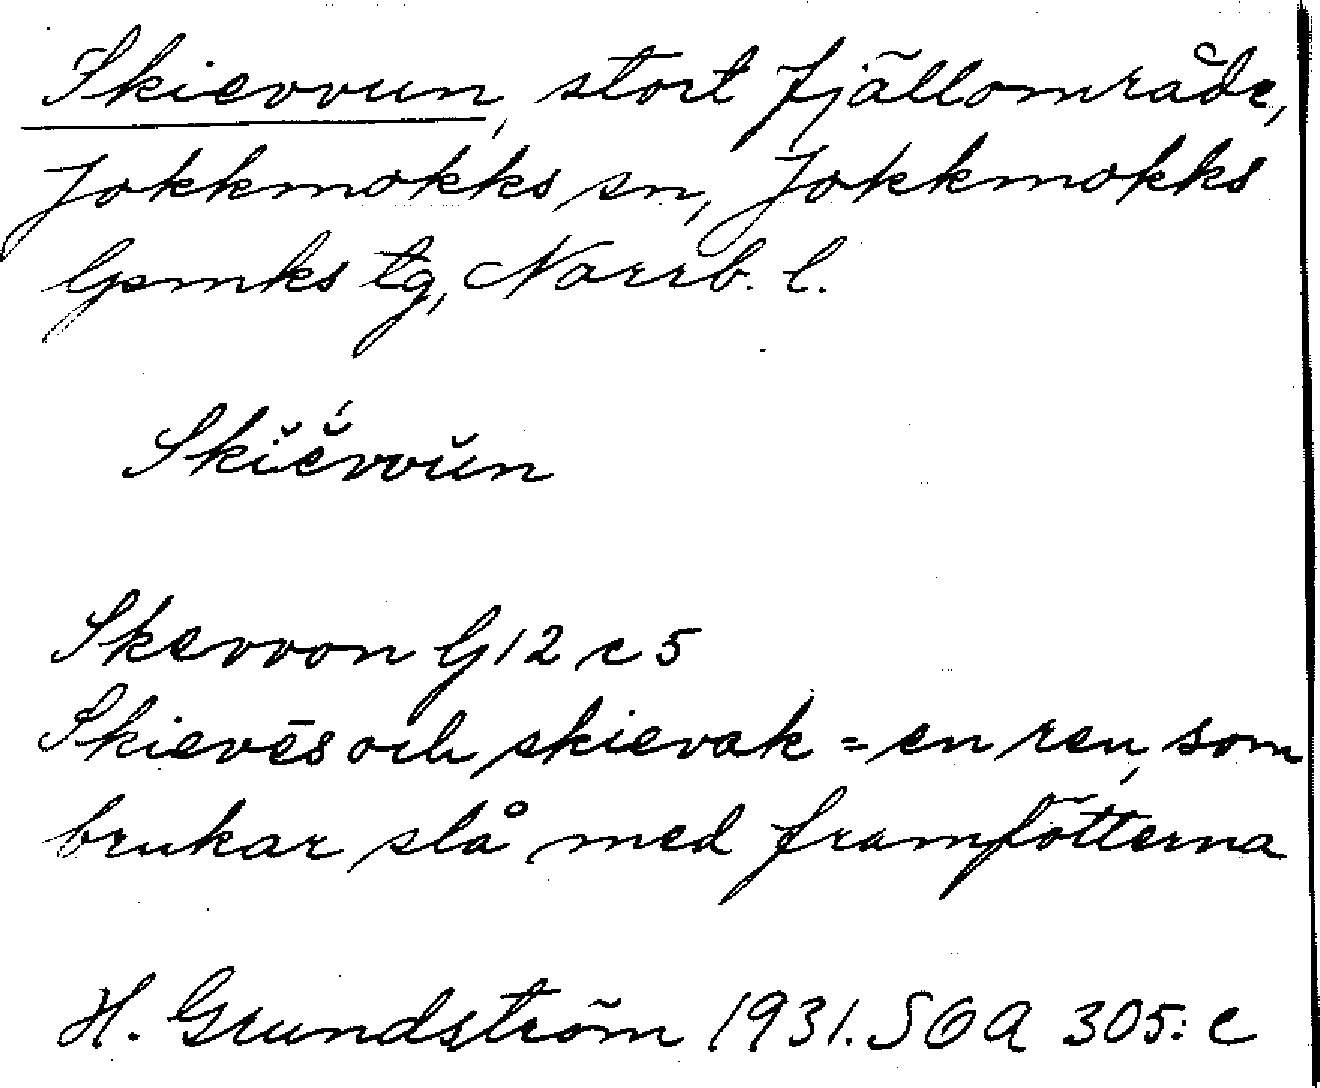 Skievvun, stort fjällområde,
Jokkmokks sn, Jokkmokks
lpmks tg, Norrb. l.
Skĭĕ́vvŭn
Skevvon G12 c 5
Skievēs och skievak = en ren, som
brukar slå med framfötterna
H. Grundström 1931. SOA 305: c